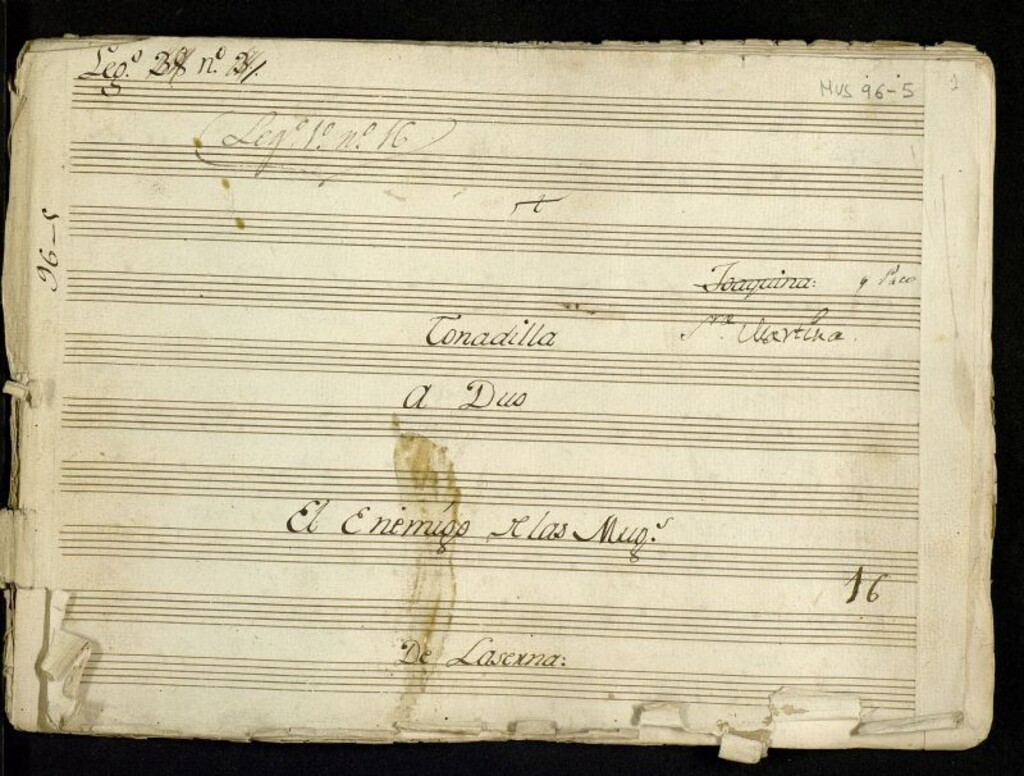 Leg.º nº.
MUS 96-5
1
Legº. 1º. nº. 16
96-5
Joaquina: y Paco
Sra. Martina.
Tonadilla
a Duo
El Enemigo de las Mug.s
16
De Laserna: